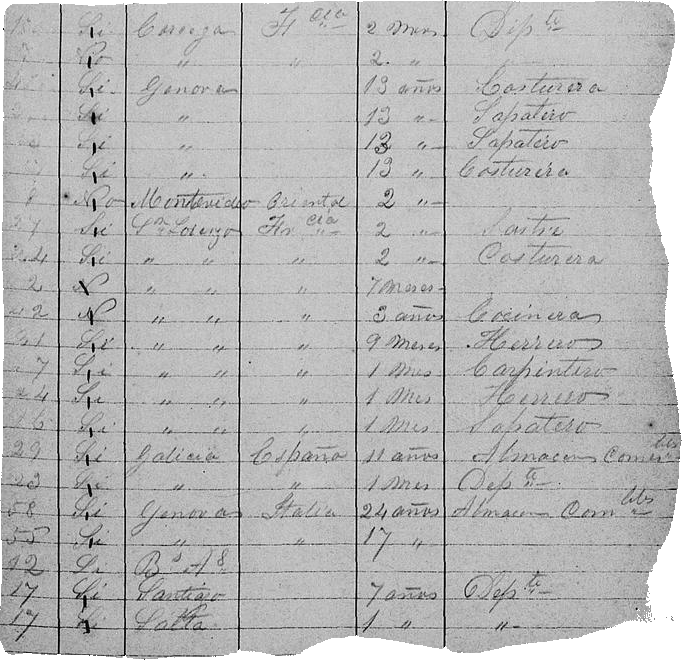 Si Corcega Fr cia 2 Mes Dep te
No " " 2 "
Si Genova 13 años Costurera
Si " 13 " Sapatero
Si " 13 " Sapatero
Si " 13 " Costurera
8 No Montevideo Oriental 2 "
27 Si Sn Lorenzo Fr cia 2 " Sastre
24 Si " " " 2 " Costurera
2 N " " " 7 Meses
42 N " " " 3 años Cocinera
41 Si " " " 9 Meses Herrero
27 Si " " " 1 Mes Carpintero
24 Si " " " 1 Mes Herrero
16 Si " " " 1 Mes Sapatero
29 Si Galicia España 11 años Almacen Comes tibs
23 Si " " 1 Mes Dep te
58 Si Genova Italia 24 años Almacen Com tibs
55 Si " " 17 "
42 Si Bs As
17 Si Santiago 7 años Dep te
17 Si Salta 1 " "